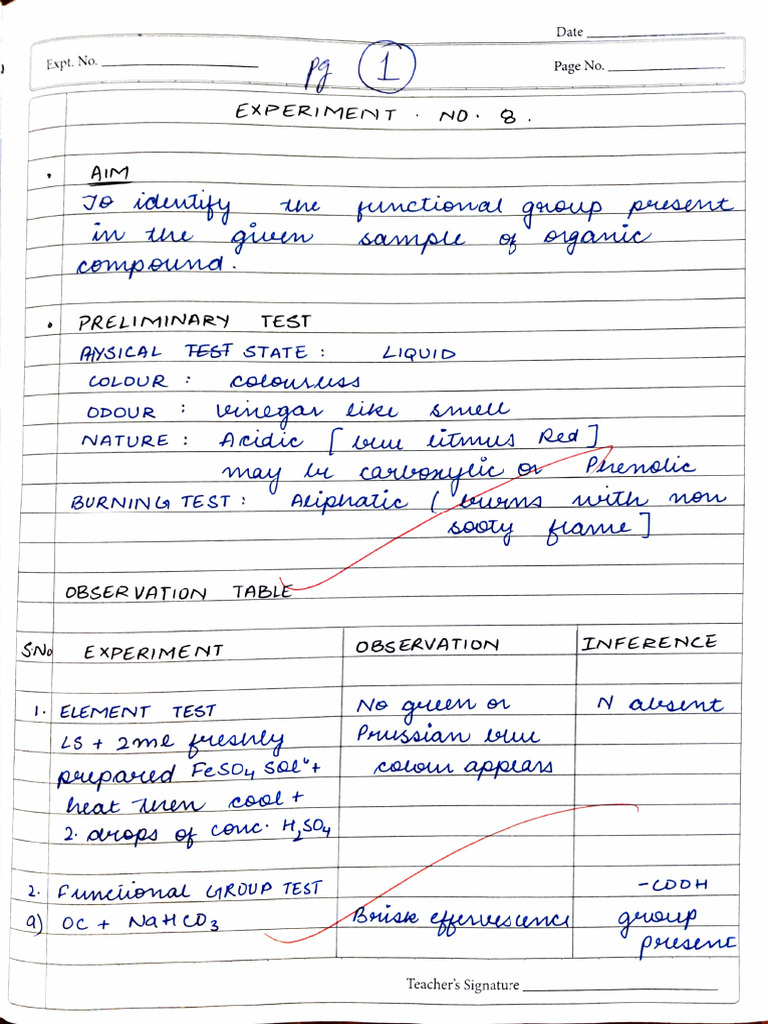 Date
Expt. No.
pg 1
Page No.
EXPERIMENT . NO. 8.
• AIM
To identify the functional group present
in the given sample of organic
compound.
• PRELIMINARY TEST
PHYSICAL TEST STATE : LIQUID
COLOUR : colourless
ODOUR : vinegar like smell
NATURE : Acidic [ blue litmus Red ]
may be carboxylic or Phenolic
BURNING TEST : Aliphatic ( burns with non
sooty flame ]
OBSERVATION TABLE
S.No EXPERIMENT OBSERVATION INFERENCE
1. ELEMENT TEST No green or N absent
LS + 2ml freshly Prussian blue
prepared FeSO4 Solⁿ + colour appears
heat then cool +
2. drops of conc. H2SO4
2. Functional GROUP TEST -COOH
a) OC + NaHCO3 Brisk effervescence group
present
Teacher's Signature